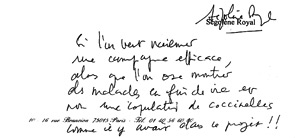 Ségolène Royal
Si l'on veut vraiment
une campagne efficace,
alors que l'on ose montrer
des malades en fin de vie et
non une copulation de coccinelles
16 rue 75015 Paris - Tél. 01 42
comme il y avait dans ce projet !!